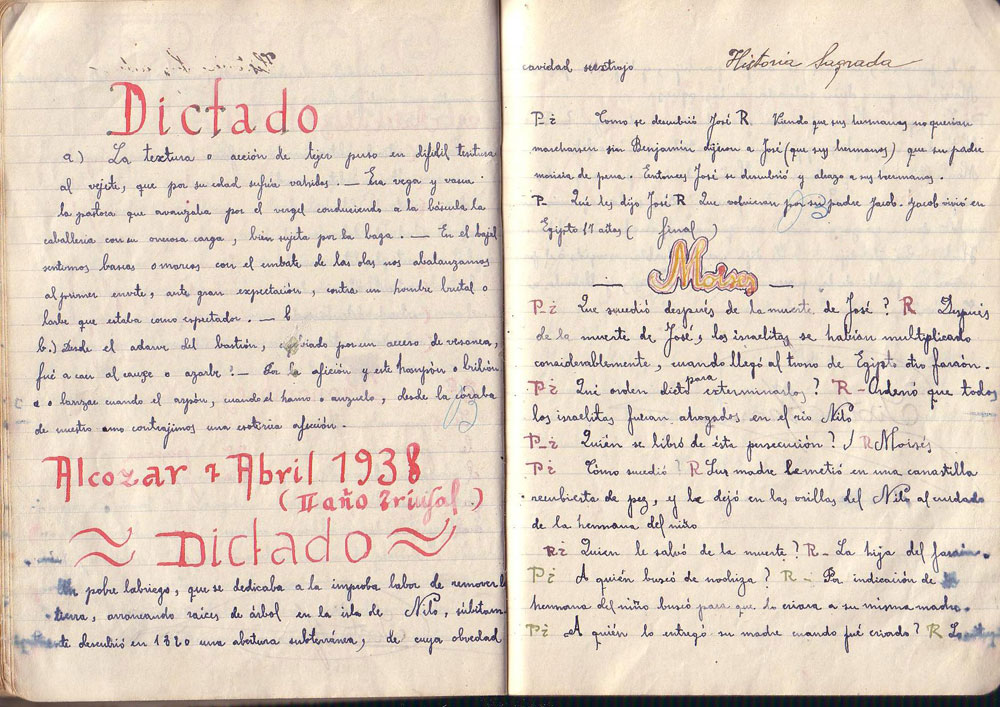 Dictado
a) La textura o acción de tejer puso en difibil tesitura
al vejete, que por su edad sufría vahidos. — Era vega y vasca
la pastora que avanzaba por el vergel conduciendo a la báscula la
caballeria con su onerosa carga, bien sujeta por la baga. — En el bajel
sentimos bascas o mareos con el embate de las olas nos abalanzamos
al primer envite, ante gran expectación, contra un hombre brutal o
barbe que estaba como espectador. — b
b.) Desde el adarve del bastión, por un acceso de vesania,
fué a caer al cauze o azarbe! — Por la afición y este hampón o bribón
a o lanzae cuando el arpón, cuando el hamo o anzuelo, desde la
de nuestro amo contrajimos una afición.
Alcozar 7 Abril 1938
(II año Triunfal.)
Dictado
Un pobre labriego, que se dedicaba a la improba labor de remover la
tierra, arrancando raíces de árbol en la isla de Nilo, súbitam
ente descubrió en 1820 una abertura subterránea, de cuya obvedad
cavidad sextrajo
Historia Sagrada
P ¿ Como se descubrió José R. Viendo que sus hermanas no querian
marcharsen sin Benjamín dijeron a José (que sus hermanos) que su padre
moriria de pena. Entonces José se descubrió y abazo a sus hermanos.
P. Qué les dijo José R Que volvieran por su padre Jacob. Jacob vivió en
Egipto 17 años ( final )
— Moises —
P ¿ Que sucedió después de la muerte de José? R Después
de la muerte de José, los israelitas se habían multiplicado
considerablemente, cuando llegó al trono de Egipto otro faraón.
P ¿ Qui orden dictó para exterminarlos? R - Ordenó que todos
los israelitas fueran ahogados en el rio Nilo
P ¿ Quién se libró de ésta persecución? / R Moisés
P ¿ Cómo sucedió? R Sus madre le metió en una canastilla
recubierta de pez, y le dejó en las orillas del Nilo al cuidado
de la hermana del niño
P ¿ Quien le salvó de la muerte? R - La hija del faraón.
P ¿ A quién buscó de nodriza? R - Por indicación de la
hermana del niño buscó para que lo criara a su misma madre.
P ¿ A quién lo entregó su madre cuando fué criado? R Lo